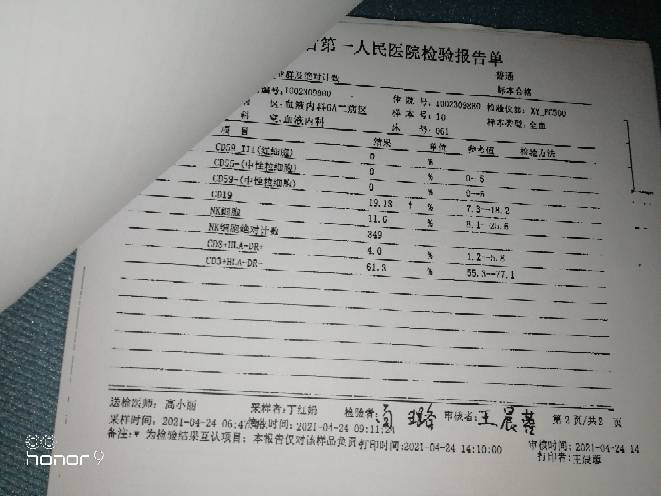 第一人民医院检验报告单
群及绝对计数 普通
编号:1002309880 住院号:1002309880 检验仪器: XY_FC500 标本合格
区:血液内科6A二病区 样本号:10 样本类型:全血
科 室:血液内科 床 号:061
项 目 结果 单位 参考值 检验方法
CD59_III(红细胞) 0 %
CD55-(中性粒细胞) 0 % 0--5
CD59-(中性粒细胞) 0 % 0--5
CD19 19.13 ↑ % 7.3--18.2
NK细胞 11.6 % 8.1--25.6
NK细胞绝对计数 349
CD3+HLA-DR+ 4.0 % 1.2--5.8
CD3+HLA-DR- 61.3 % 55.3--77.1
送检医师: 高小丽 采样者:丁红娟 检验者: 璐 审核者:王晨蓉 第 2 页/共2 页
采样时间:2021-04-24 06:47 时间:2021-04-24 09:11:24 审核时间:2021-04-24 14
备注:▼ 为检验结果互认项目; 本报告仅对该样品负责 打印时间:2021-04-24 14:10:00 打印者:王晨蓉
honor 9